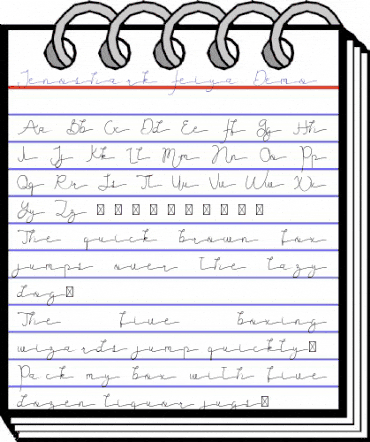 Demo
Aa Bb Cc Dd Ee Ff Gg Hh
Ii Jj Kk Ll Mm Nn Oo Pp
Qq Rr Ss Tt Uu Vv Ww Xx
Yy Zz
The quick brown fox
jumps over the lazy
dog
The five boxing
wizards jump quickly
Pack my box with five
dozen liquor jugs